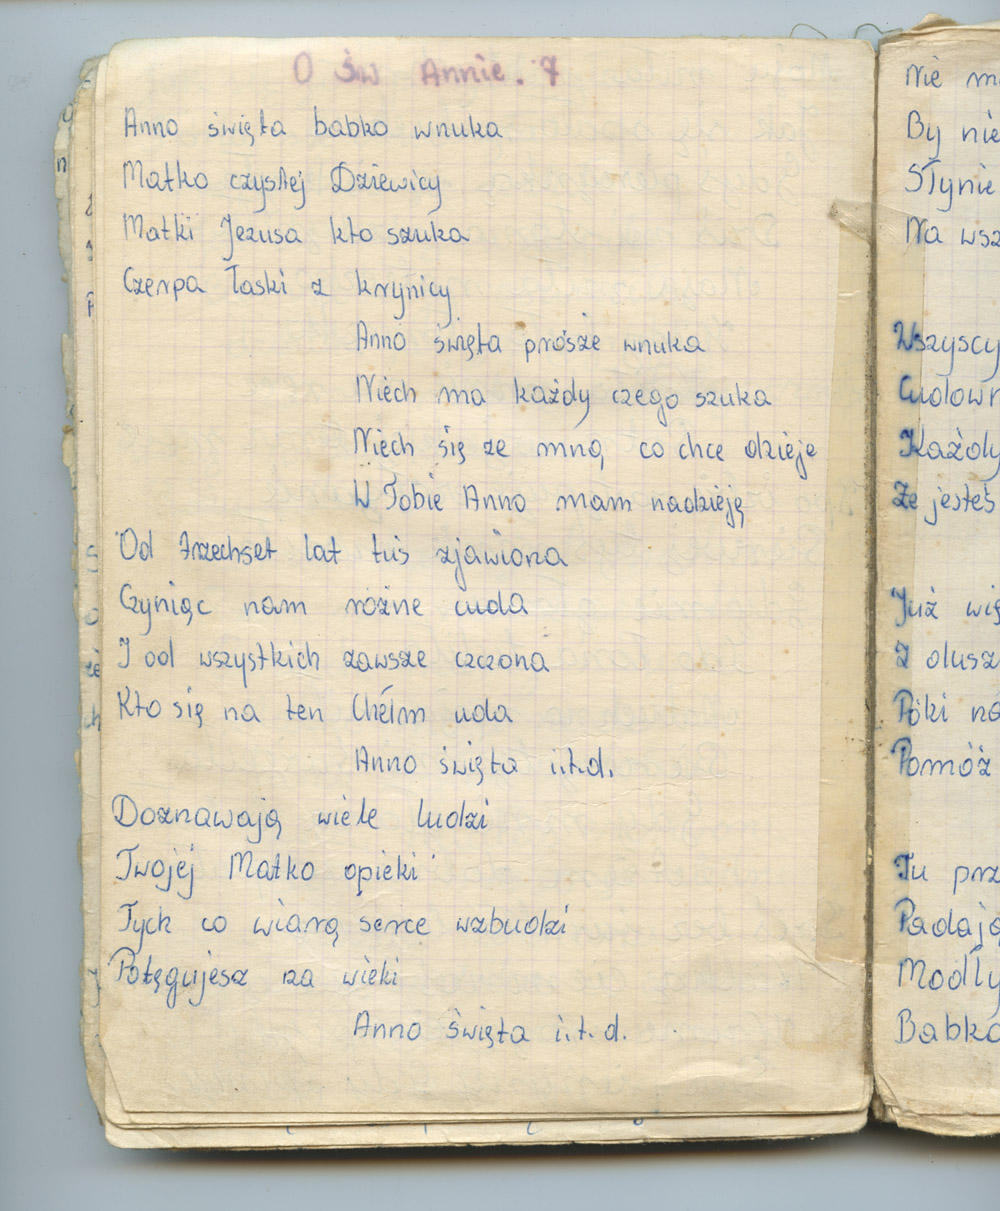 O św Annie. 7
Anno święta babko wnuka
Matko czystej Dziewicy
Matki Jezusa kto szuka
Czerpa łaski z krynicy
Anno święta prósze wnuka
Niech ma każdy czego szuka
Niech się ze mną co chce dzieje
W Tobie Anno mam nadzieję
Od trzechset lat tuś zjawiona
Czyniąc nam różne cuda
I od wszystkich zawsze czczona
Kto się na ten Chełm uda
Anno święta i.t.d.
Doznawają wiele ludzi
Twojej Matko opieki
Tych co wiarą serce wzbudzi
Potęgujesz za wieki
Anno święta i.t.d.
Nie
By nie
Słynie
Na
Wszyscy
Cudown
Każdy
Że jesteś
Już
Z
Póki
Pomóż
Tu
Padają
Modły
Babko